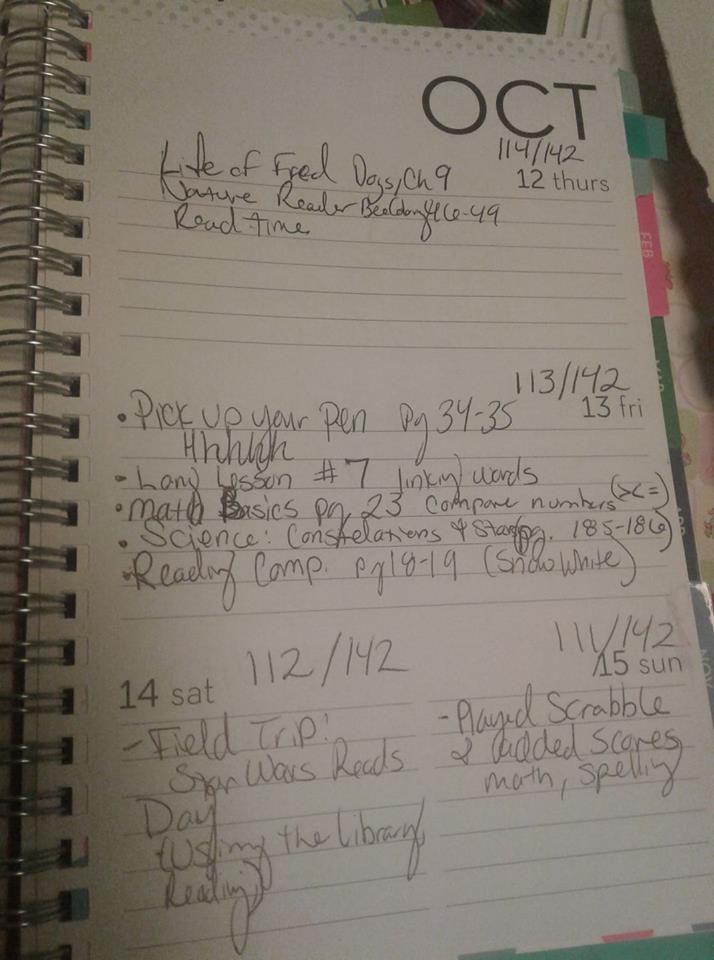 OCT
114/142
12 thurs
Life of Fred Dogs, Ch 9
Nature Reader 46-49
Read time
113/142
13 fri
• Pick up your Pen pg 34-35
Hhhhhh
• Lang Lesson #7 linking words
• Math Basics pg 23 compare numbers (><=)
• Science: Constelations & Stars pg. 185-186)
• Reading Comp. pg 18-19 (Snow White)
112/142
14 sat
- Field Trip!
Star Wars Reads
Day
(Using the Library,
Reading)
111/142
15 sun
- Played Scrabble
& added scores
math, spelling
FEB
MAR
APR
NOV